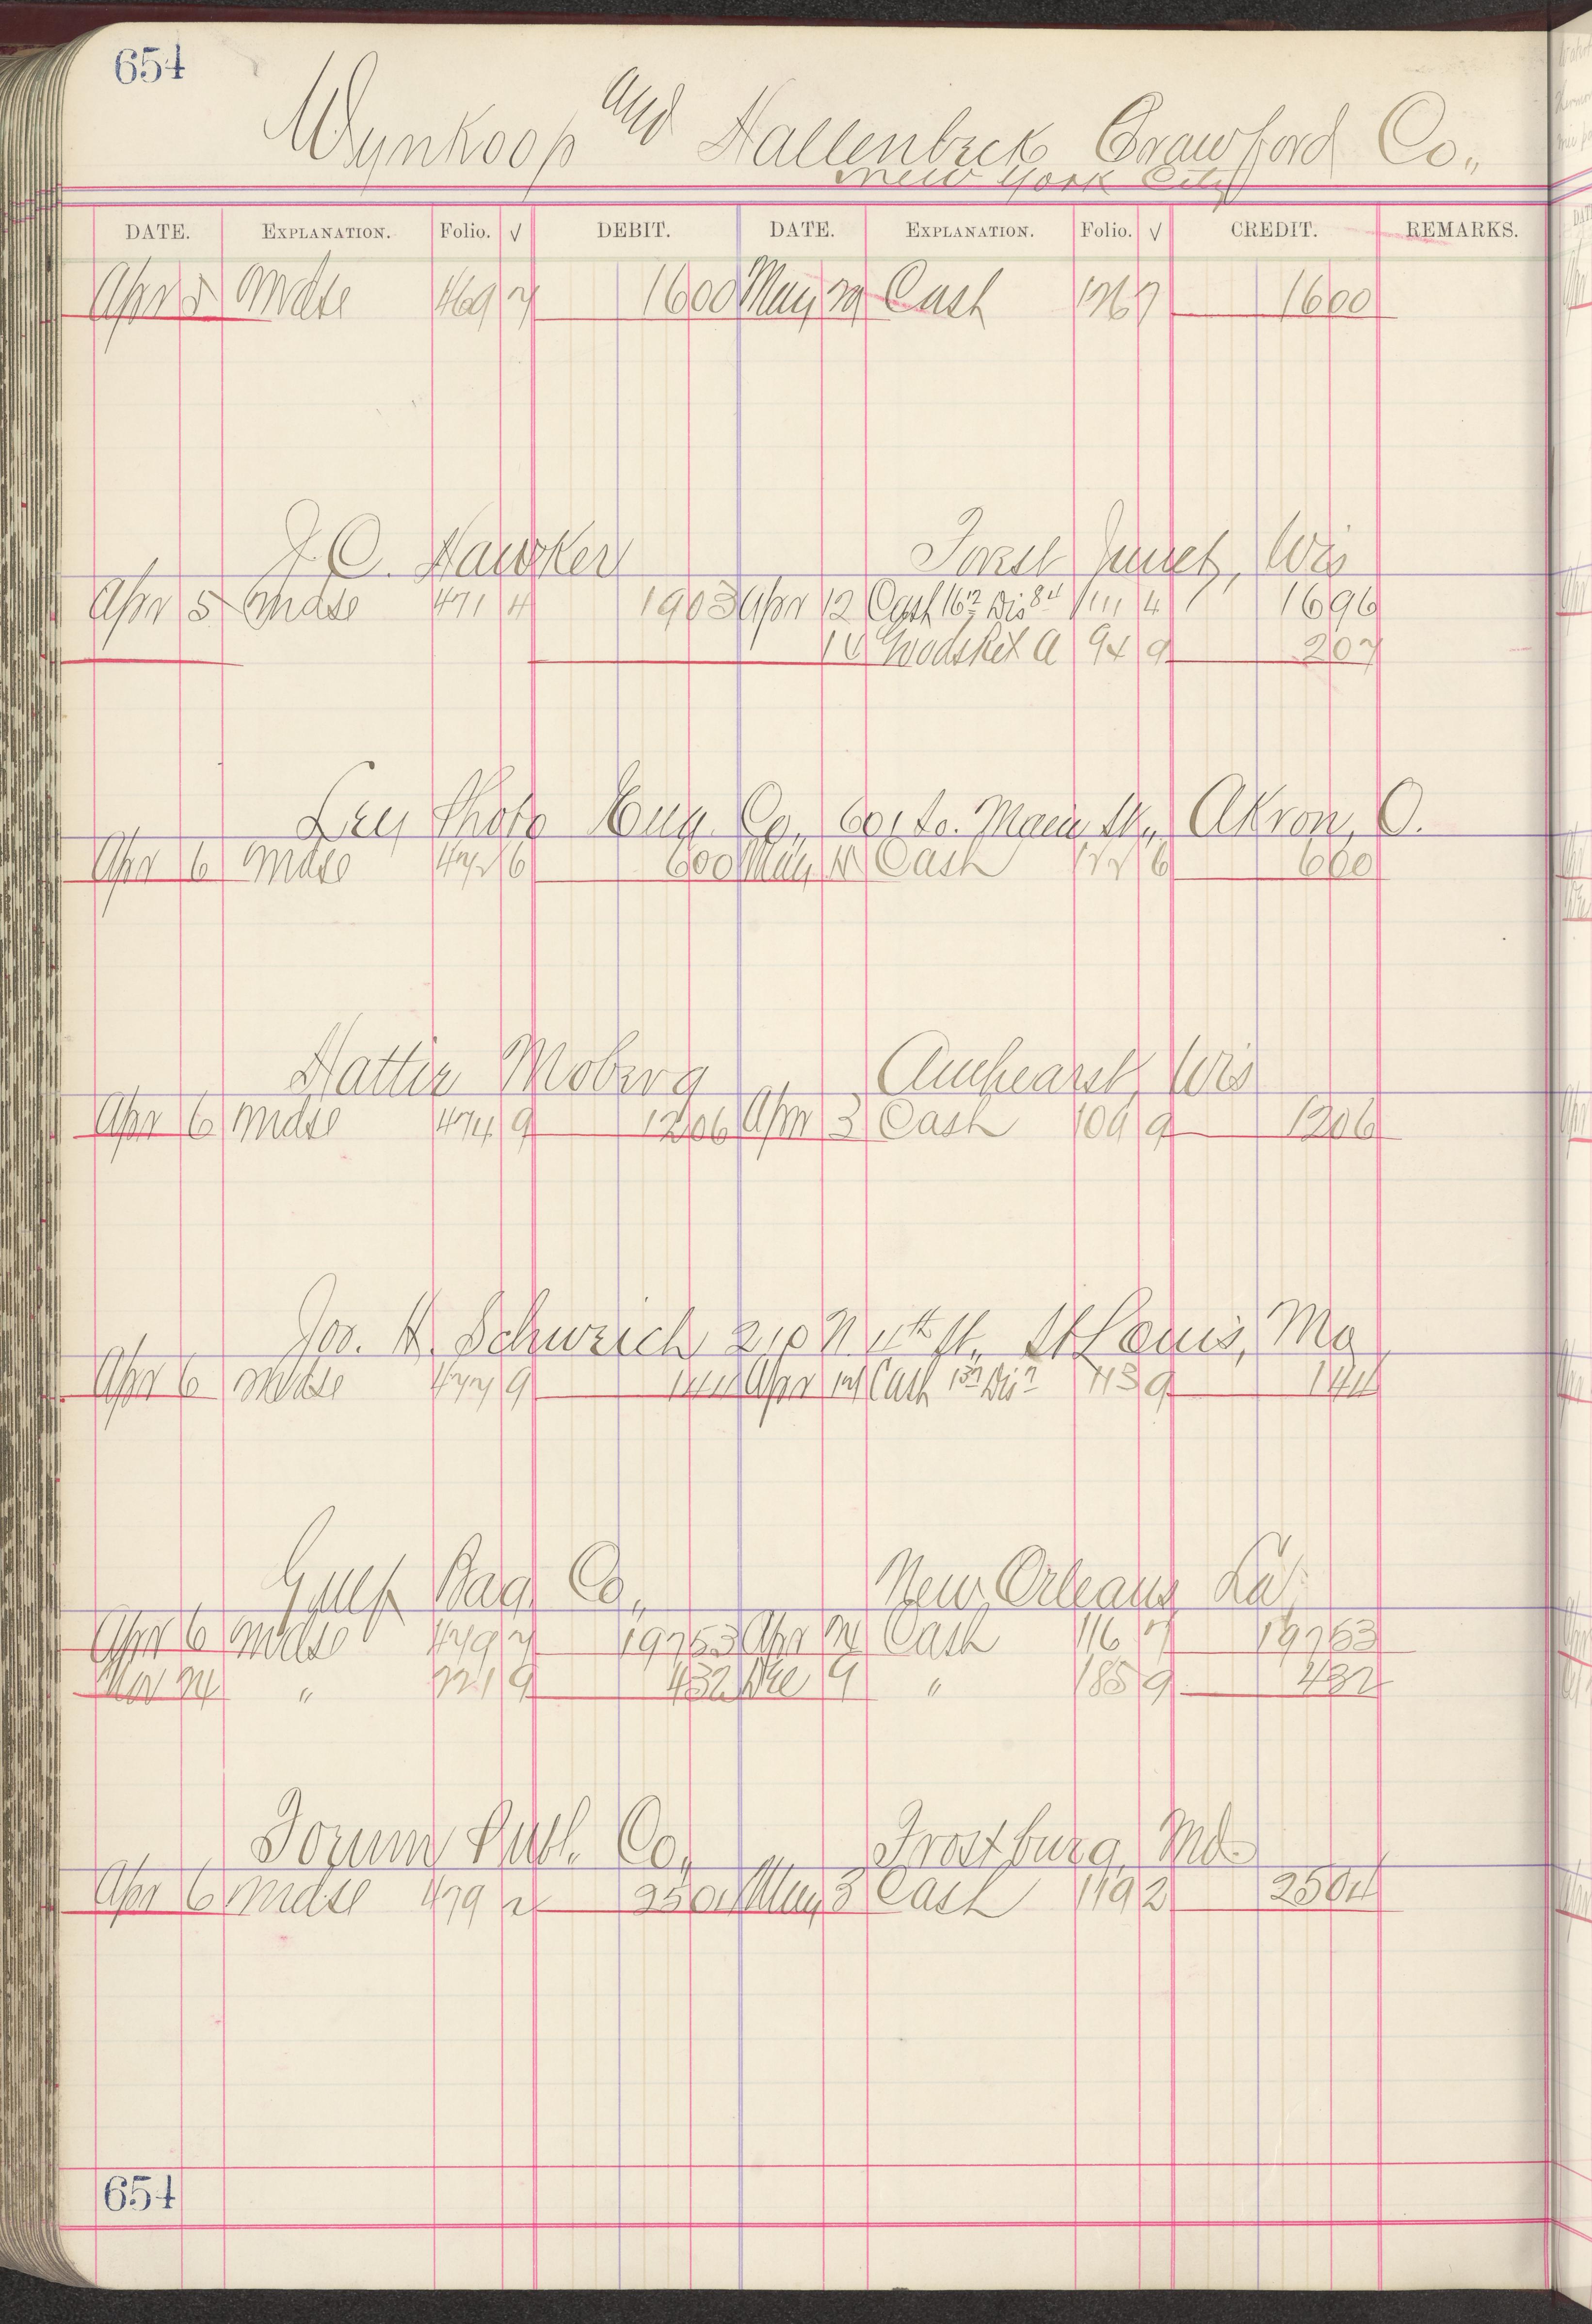 654
Wynkoop and Hallenbeck Crawford Co.,
New York City
DATE. EXPLANATION. Folio. √ DEBIT. DATE. EXPLANATION. Folio. √ CREDIT. REMARKS.
Apr 5 Mdse 469 7 1600 May 29 Cash 126 7 1600
J. C. Hawker Forest Junct, Wis
Apr 5 Mdse 471 4 1903 Apr 12 Cash 16 12 Dis 84 111 4 1696
Goods Ret 94 9 207
Ley Photo Eng. Co., 60 So. Main St., Akron, O.
Apr 6 Mdse 6 600 May Cash 6 600
Hattie Moberg Amhearst, Wis
Apr 6 Mdse 474 9 1206 Apr 3 Cash 109 9 1206
Jos. H. Schweich 210 N. St. St Louis, Mo
Apr 6 Mdse 477 9 144 Apr Cash Dis 113 9 144
Gulf Bag Co., New Orleans La
Apr 6 Mdse 479 7 19763 Apr 24 Cash 116 7 19763
Nov 24 " 721 9 432 Dec 9 " 185 9 432
Forum Publ. Co., Frostburg, Md
Apr 6 Mdse 479 2 2504 May 3 Cash 119 2 2504
654